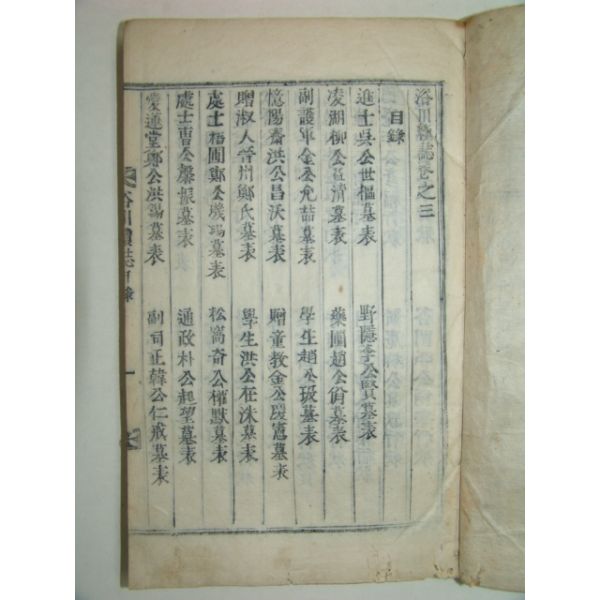 洛川續誌卷之三
目錄
進士吳公世樞墓表 野隱李公賢墓表
凌湖柳公 清墓表 藥圃趙公 墓表
副護軍金公允喆墓表 學生趙公 墓表
憶陽齋洪公昌沃墓表 贈童教金公 憲墓表
贈淑人晉州鄭氏墓表 學生洪公在洙墓表
處士梧圃鄭公 墓表 松窩奇公 默墓表
處士曺公 振墓表 通政朴公起望墓表
愛蓮堂鄭公洪 墓表 副司正韓公仁戒墓表
洛川續誌目錄 一